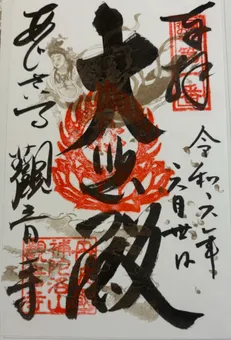 奉拝
令和六年
六月廿日
大悲殿
あじさゐ
觀音寺
補陀洛山
觀音寺